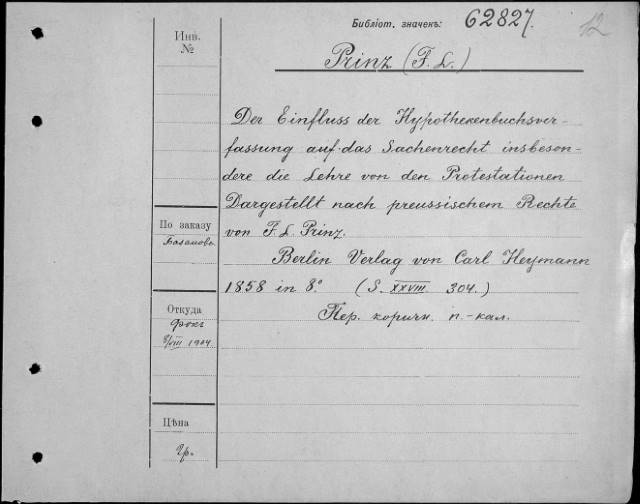 Библіот. значекъ: 62827.
12
Инв.
№
Prinz (F. L.)
Der Einfluss der Hypothekenbuchsver-
fassung auf das Sachenrecht insbeson-
dere die Lehre von den Protestationen
Dargestellt nach preussischem Rechte
von F. L. Prinz.
Berlin Verlag von Carl Heymann
1858 in 8.° (S. XXVIII. 304.)
Пер. коричн. п.-кал.
По заказу
Базановъ
Откуда
Фокъ
8/VIII 1904
Цѣна
2р.